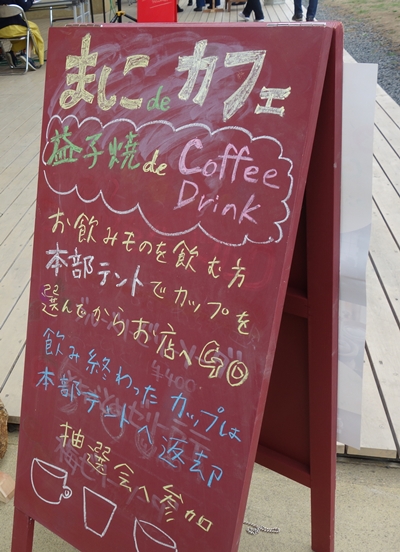 ましこ de カフェ
益子焼 de Coffee
Drink
お飲みものを飲む方
本部テントでカップを
選んでからお店へGO
飲み終わったカップは
本部テントへ返却
抽選会へ参加